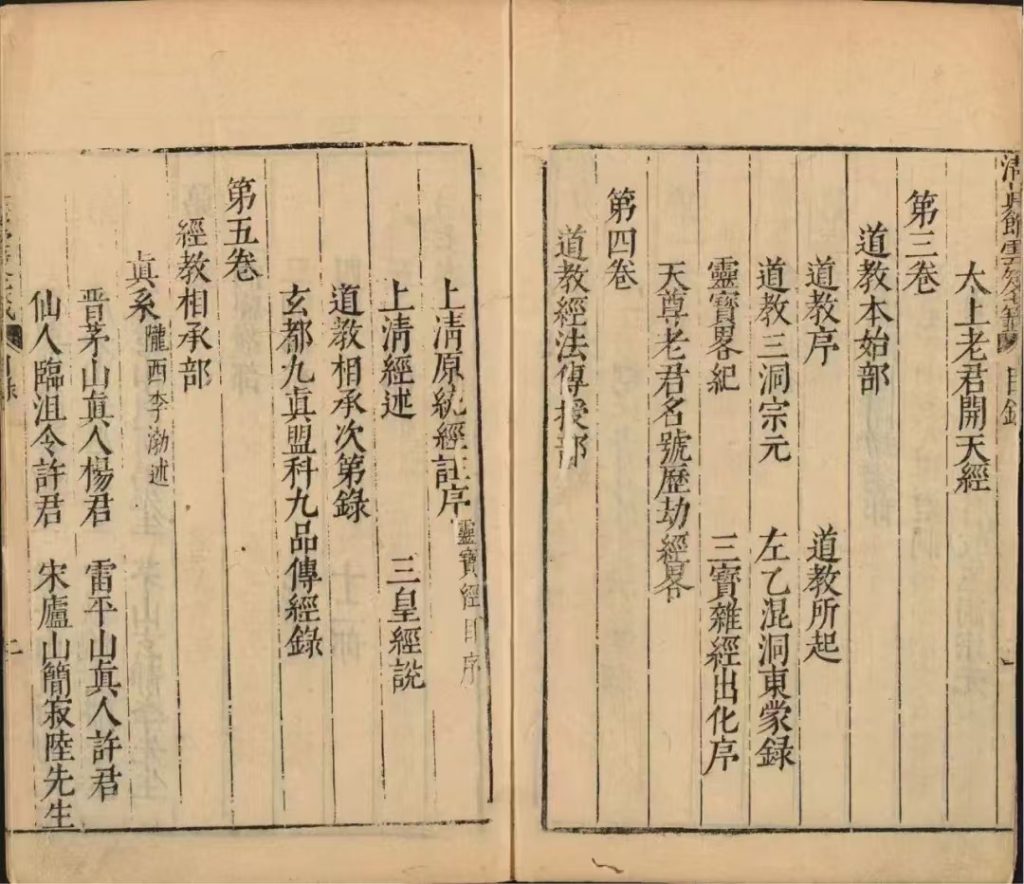 清真館雲笈籤 目錄
太上老君開天經
第三卷
道教本始部
道教序 道教所起
道教三洞宗元 左乙混洞東蒙錄
靈寶畧紀 三寶雜經出化序
天尊老君名號歷劫經畧
第四卷
道教經法傳授部
上清原統經註序 靈寶經目序
上清經述 三皇經說
道教相承次第錄
玄都九眞盟科九品傳經錄
第五卷
經教相承部
眞系 隴西李渤述
晉茅山眞人楊君 雷平山眞人許君
仙人臨沮令許君 宋廬山簡寂陸先生
目錄
二